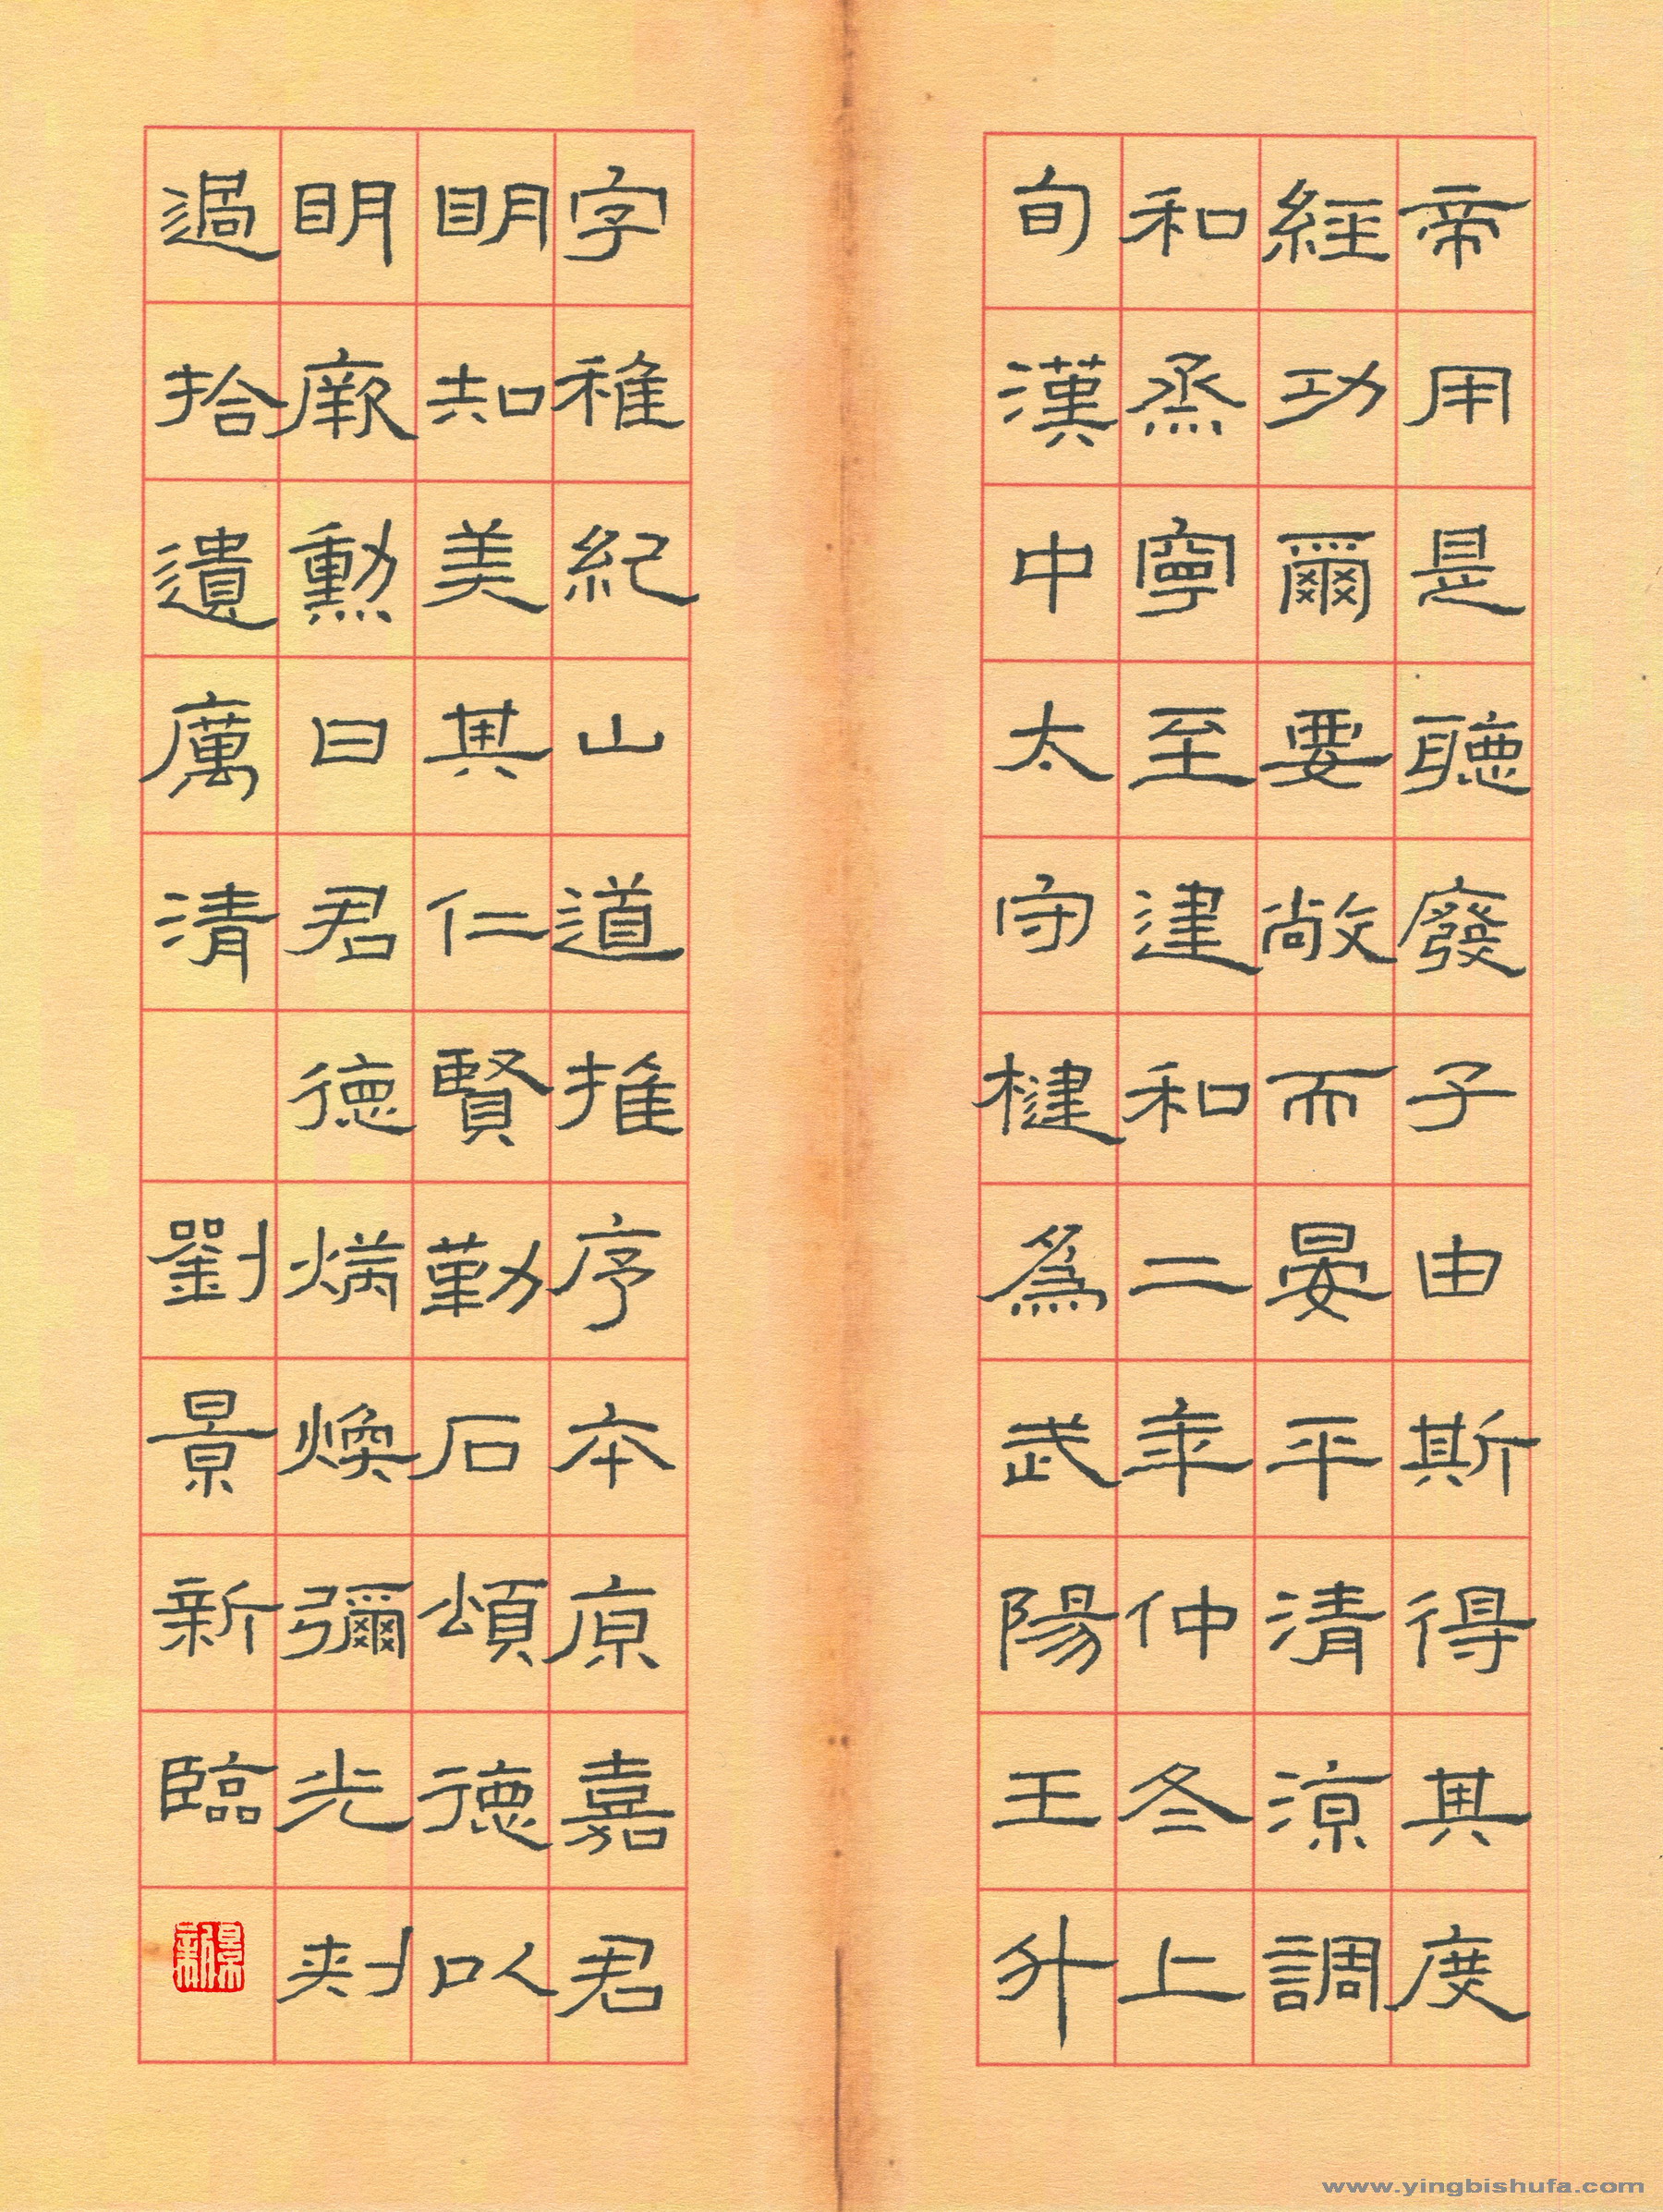 帝用是聽廢子由斯得其度
經功爾要敞而晏平清涼調
和烝寧至建和二年仲冬上
旬漢中太守楗為武陽王升
字稚紀山道推序本原嘉君
明知美其仁賢勤石頌德以
明厥勳曰君德煥煥彌光刺
過拾遺厲清 劉景新臨
景新
www.yingbishufa.com